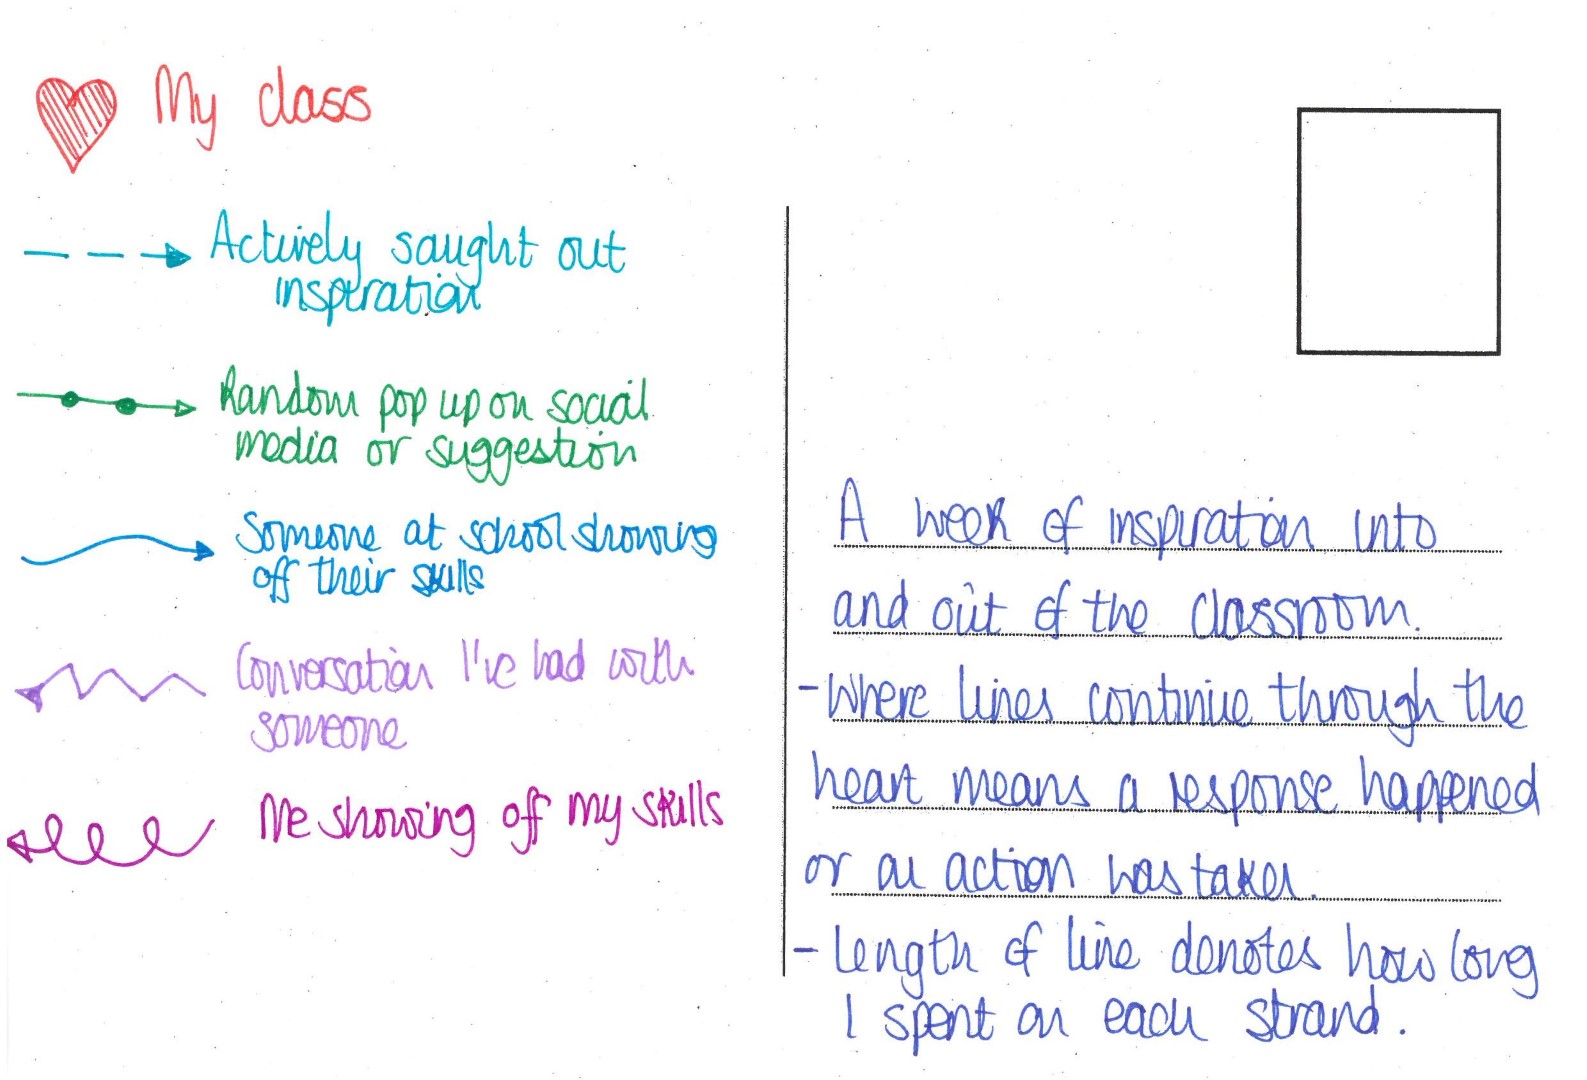 My class
Actively saught out
inspiration
Random pop up on social
media or suggestion
Someone at school showing
off their skills
Conversation I've had with
someone
Me showing off my skills
A week of inspiration into
and out of the classroom.
- Where lines continue through the
heart means a response happened
or an action was taken.
- Length of line denotes how long
I spent on each strand.